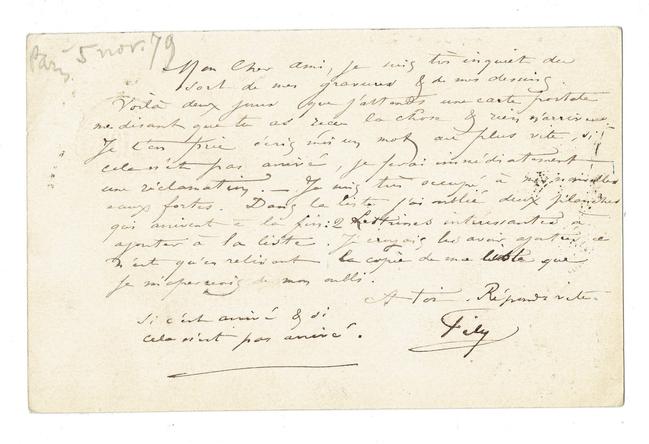 Paris 5 nov. 79
Mon cher ami, je suis très inquiet du
sort de mes gravures & de mes dessins.
Voilà deux jours que j'attends une carte postale
me disant que tu as reçu la chose & rien n'arrive.
Je t'en prie écris moi un mot au plus vite, si
cela n'est pas arrivé, je ferai immédiatement
une réclamation. — Je suis très occupé à mes nouvelles
eaux fortes. Dans la liste j'ai oublié deux planches
qui arrivent à la fin: 2 intéressantes à
ajouter à la liste. Je croyais les avoir ajoutées, ce
n'est qu'en relisant la copie de ma liste que
je m'aperçois de mon oubli.
A toi. Réponds vite.
si c'est arrivé & si
cela n'est pas arrivé.